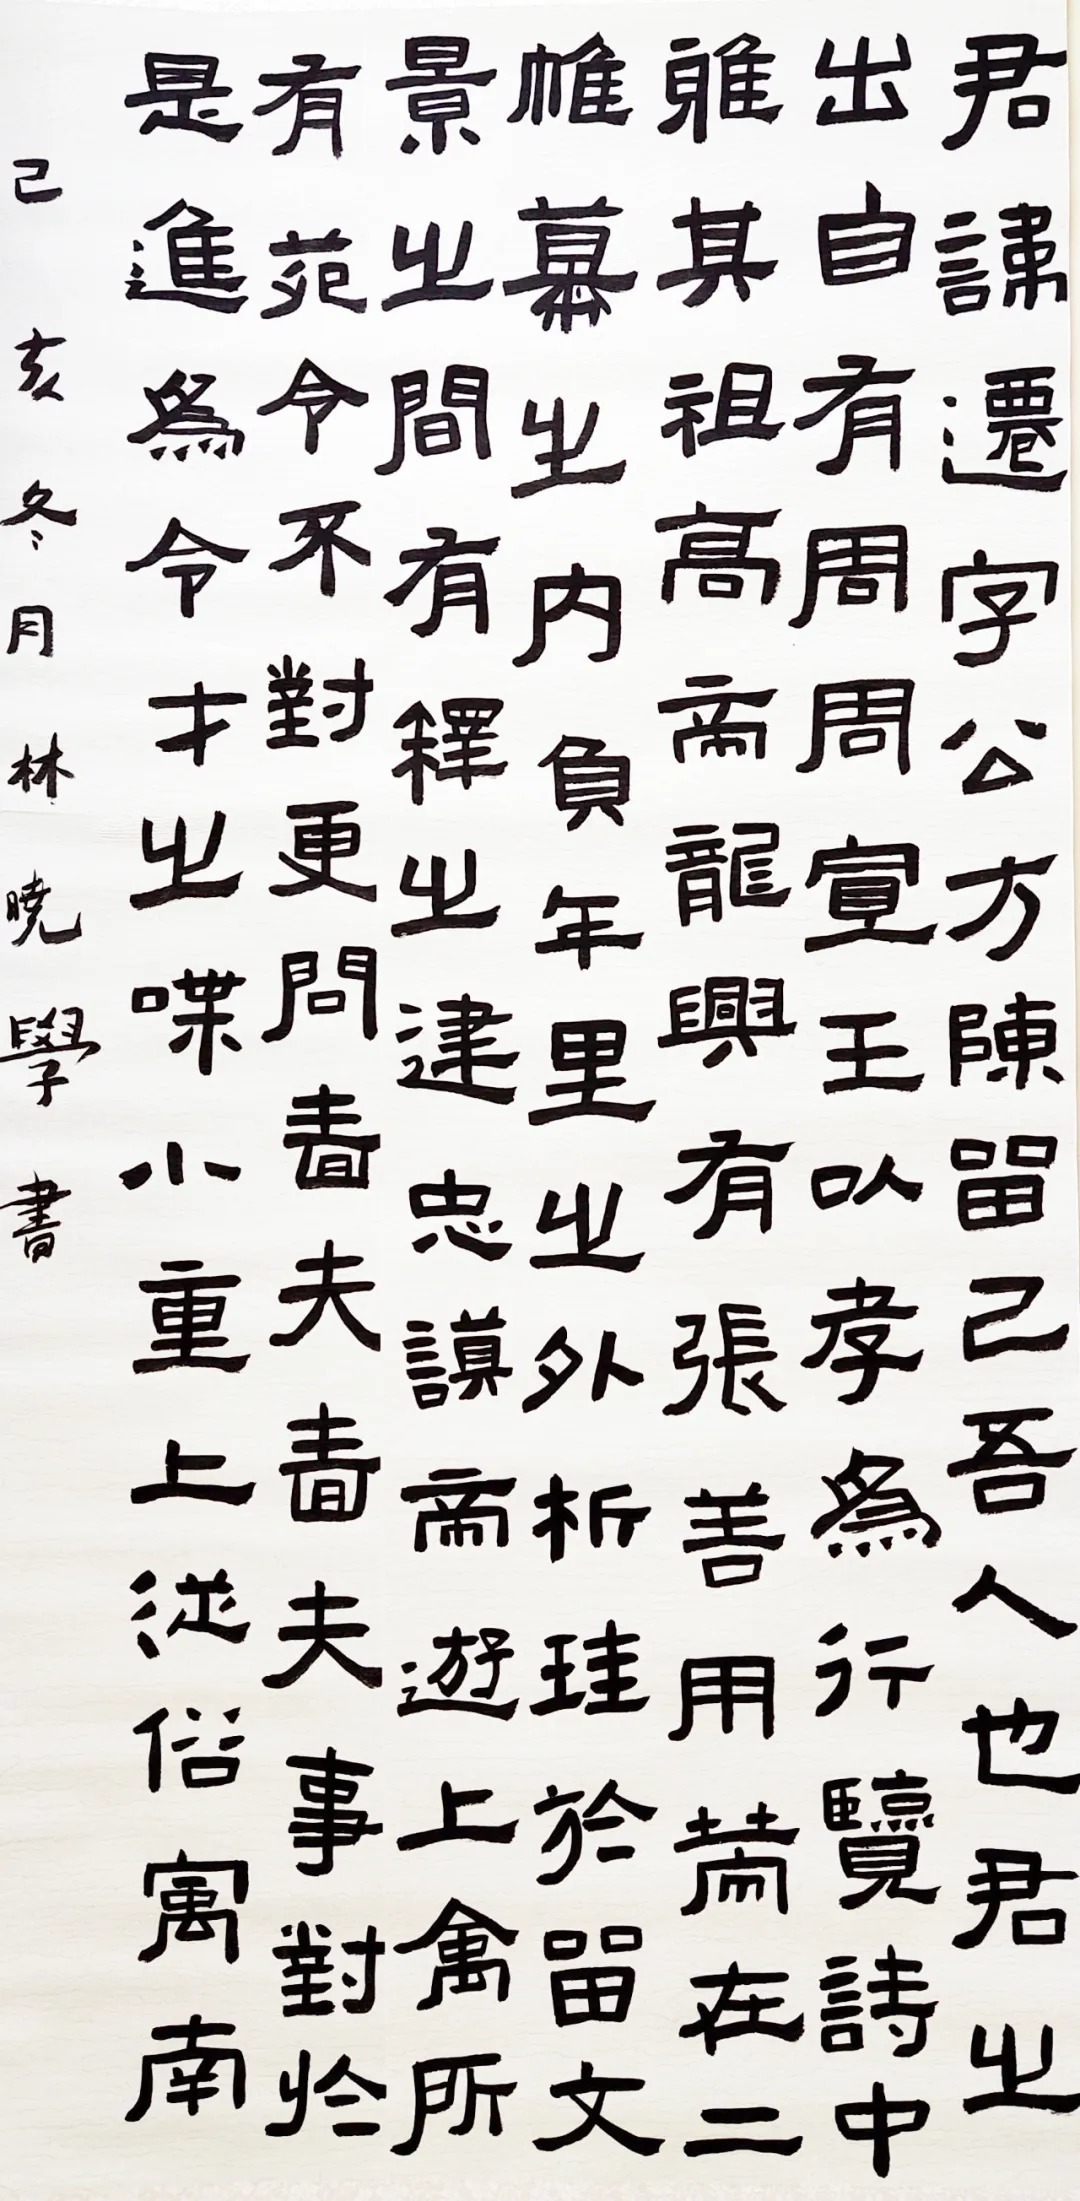 君諱遷字公方陳留己吾人也君之
出自有周周宣王以孝為行覽詩中
雅其祖高帝龍興有張善用策在二
帷幕之内負年里之外析珪於留文
景之間有釋之建忠謨帝遊上禽所
有苑令不對更問嗇夫嗇夫事對於
是進為令才之喋小重上從俗寓南
己亥冬月林曉學書